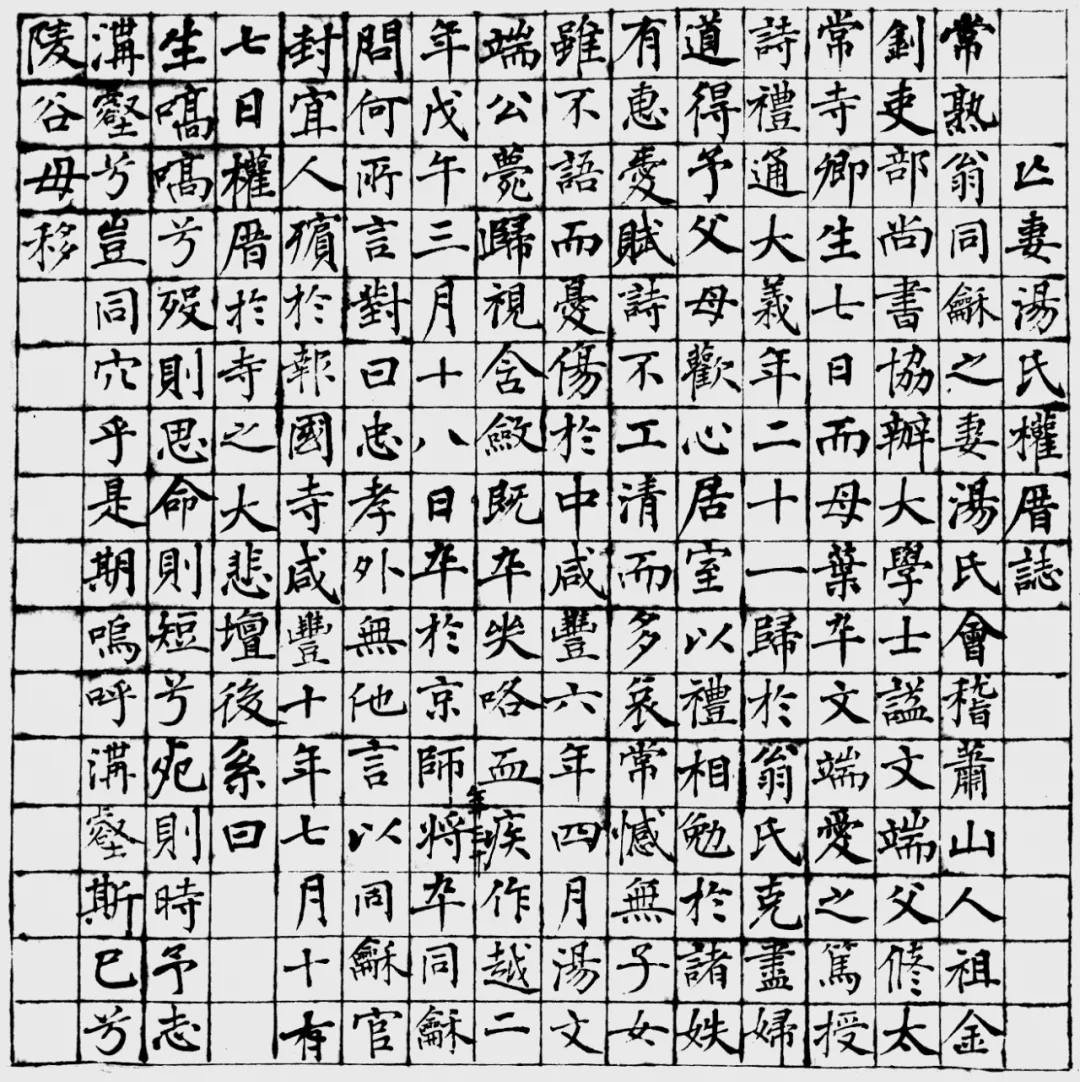 亡妻湯氏權厝誌
常熟翁同龢之妻湯氏會稽蕭山人祖金
釗吏部尚書協辦大學士謚文端父修太
常寺卿生七日而母葉卒文端愛之篤授
詩禮通大義年二十一歸於翁氏克盡婦
道得予父母歡心居室以禮相勉於諸妷
有恵愛賦詩不工清而多哀常憾無子女
雖不語而憂傷於中咸豐六年四月湯文
端公薨歸視含斂既卒哭咯血疾作越二
年戊午三月十八日卒於京師年三十將卒同龢
問何所言對曰忠孝外無他言以同龢官
封宜人殯於報國寺咸豐十年七月十有
七日權厝於寺之大悲壇後系曰
生嗃嗃兮歿則思命則短兮死則時予志
溝壑兮豈同穴乎是期嗚呼溝壑斯已兮
陵谷毋移